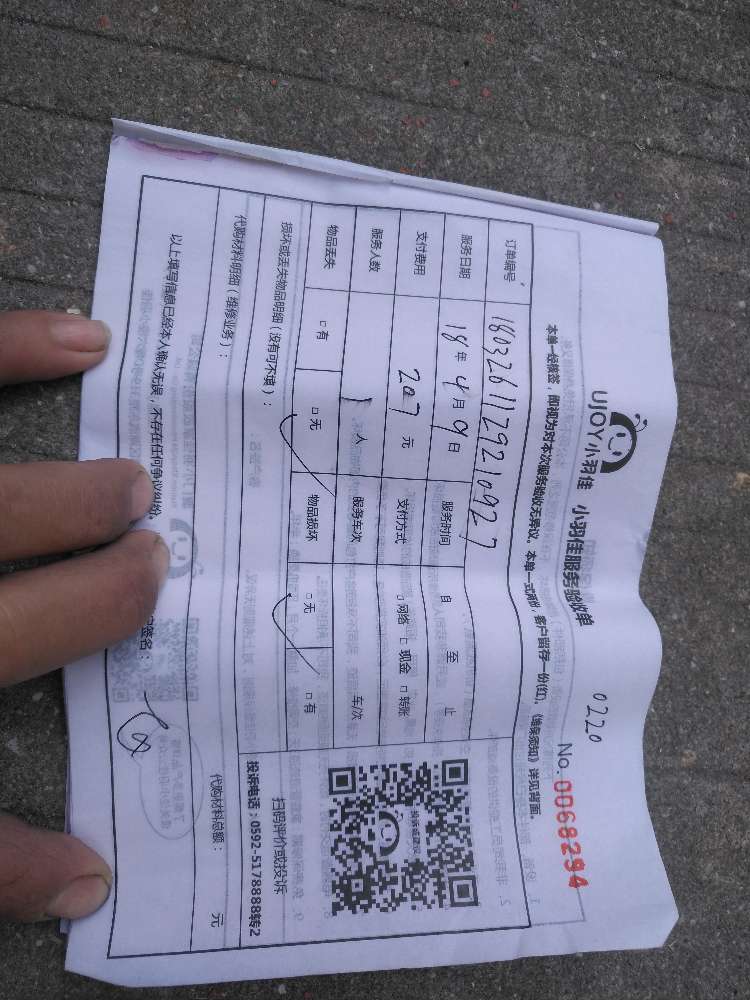 UJOY小羽佳 小羽佳服务验收单
0220
No. 0068294
本单一经核签，即视为对本次服务验收无异议。本单一式两份，客户留存一份(红)，《维保须知》详见背面。
订单编号 1803261129210927
服务日期 18年4月9日 服务时间 自 至 止
支付费用 207元 支付方式 □网络 □现金 □转账
服务人数 1人 服务车次 车/次
物品丢失 □有 □无 物品损坏 □无 □有
损坏或丢失物品明细（没有可不填）：
投诉或建议
扫码评价或投诉
投诉电话：0592-5178888转2
代购材料明细（维修业务）：
代购材料总额： 元
以上填写信息已经本人确认无误，不存在任何争议纠纷。
签名：